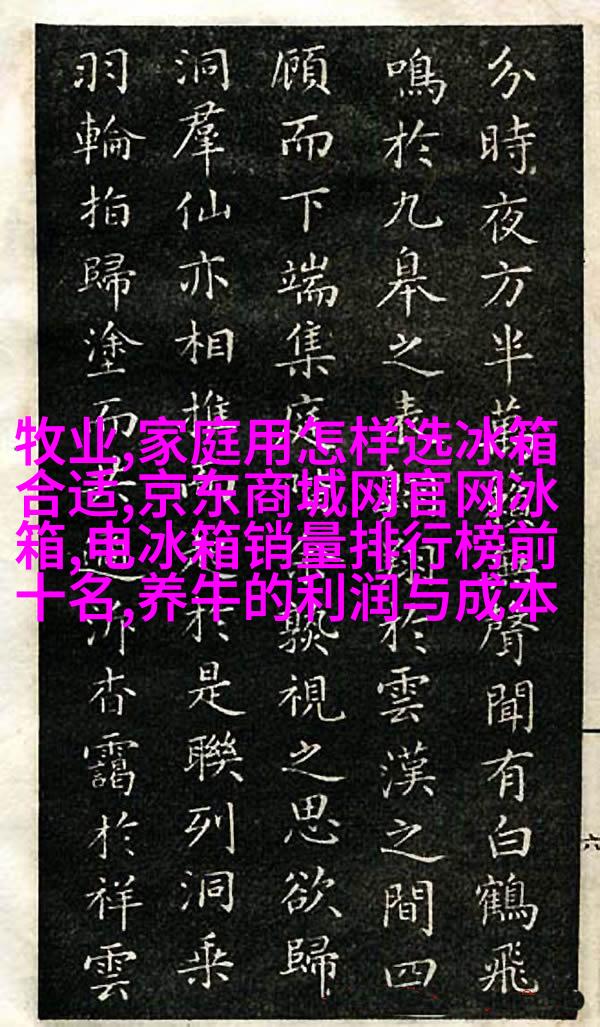 牧业,家庭用怎样选冰箱
合适,京东商城网官网冰
箱,电冰箱销量排行榜前
十名,养牛的利润与成本
分時夜方半聲聞有白鶴飛
鳴於九皋之表於雲漢之間四
顧而下端集庭視之思欲歸
洞羣仙亦相於是聯列洞乘
羽輪指歸塗而杳靄於祥雲
六